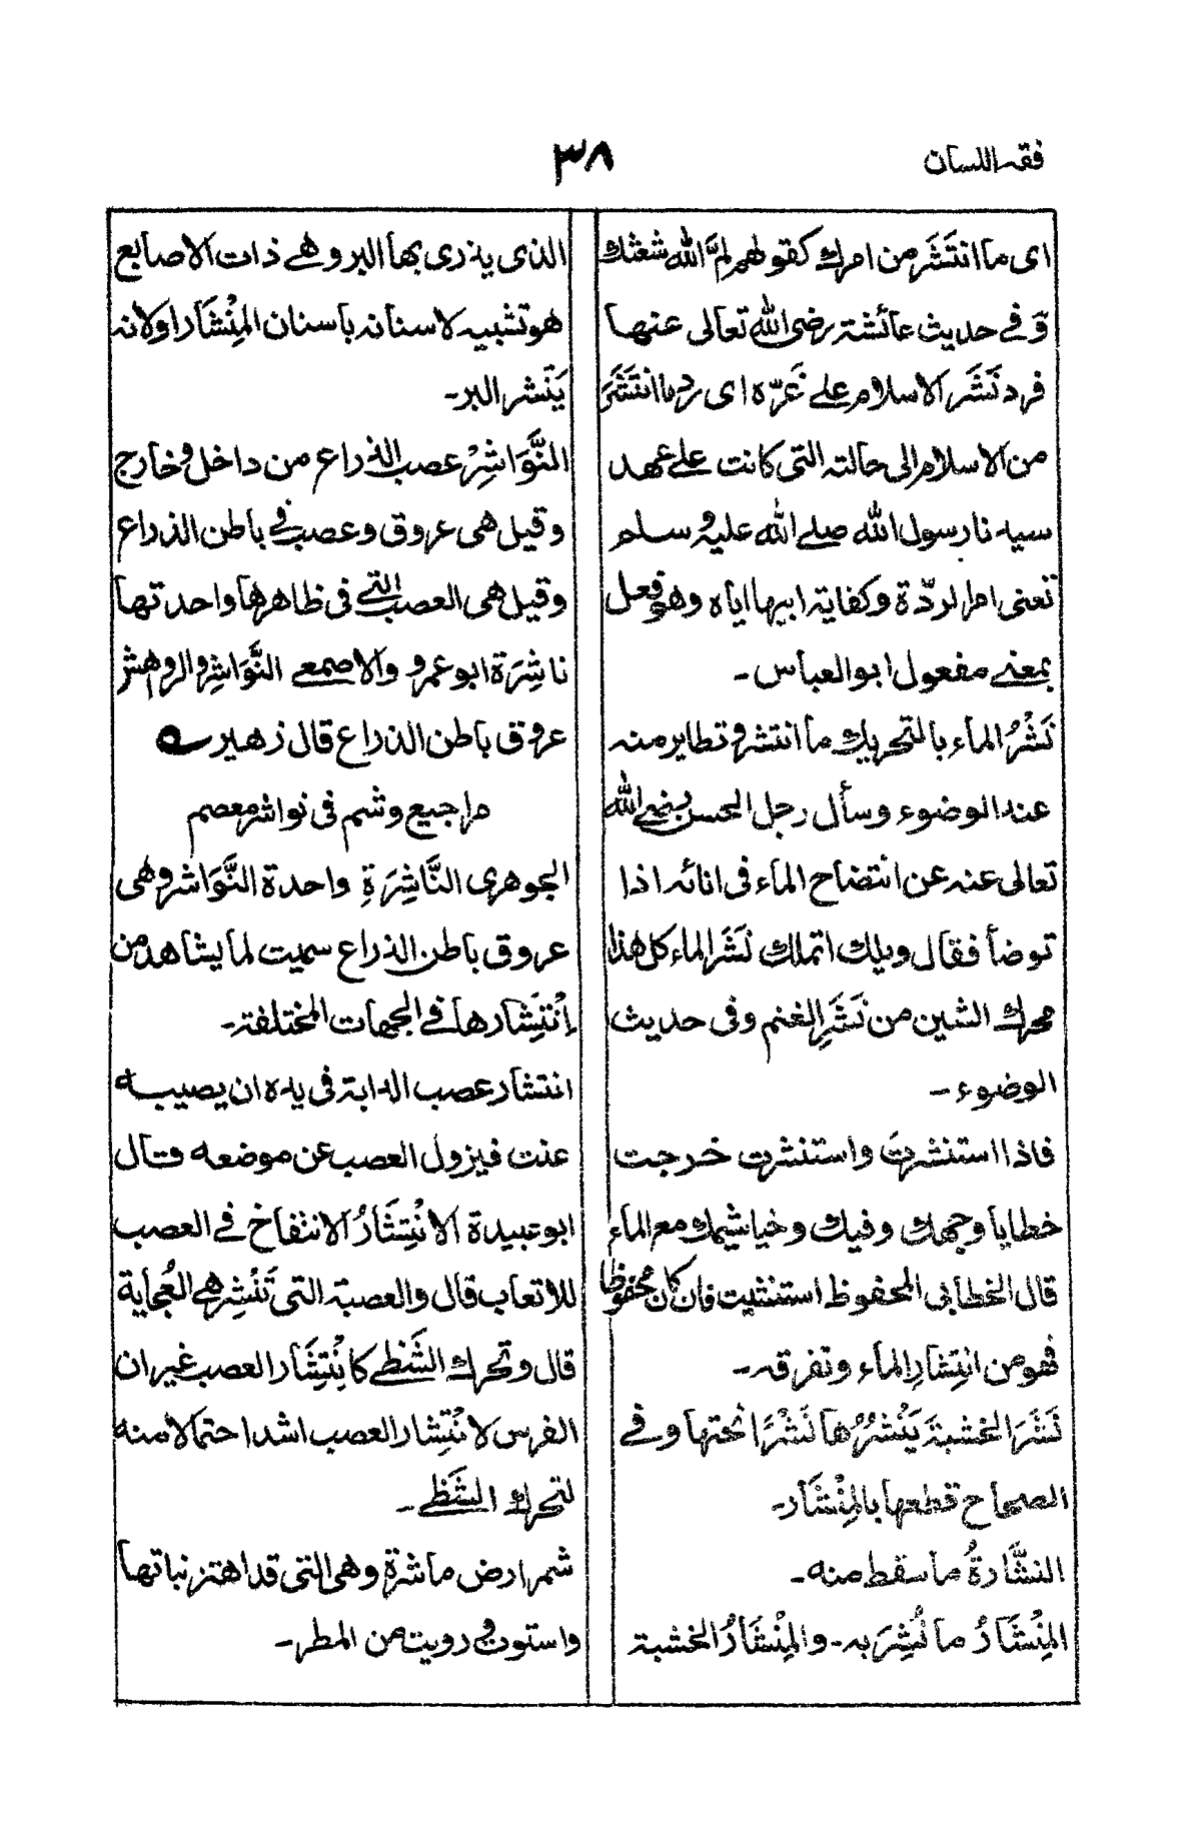 فقه اللسان
٣٨
ای ما انتَشَرَ من امرك كقولهم لَمَّ الله شعثك
وَفی حدیث عائشة رضی الله تعالی عنها
فرد نَشَر الاسلام علی غَرّه ای رد ما انتَشَرَ
من الاسلام الی حالته التی كانت علی عهد
سیدنا رسول الله صلی الله علیه وسلم
تعنی امر الردّة وكفایة ابیها ایاه وهو فعل
بمعنی مفعول ابو العباس۔
نَشْرُ الماء بالتحریك ما انتشر وتطایر منه
عند الوضوء وسأل رجل الحسن رضی الله
تعالی عنه عن انتضاح الماء فی انائه اذا
توضأ فقال ویلك اتملك نَشَر الماء كل هذا
محرك الشین من نَشَرِ الغنم وفی حدیث
الوضوء۔
فاذا استنشرتَ واستنشرت خرجت
خطایا وجهك وفیك وخیاشیمك مع الماء
قال الخطابی المحفوظ استنشیت فان كان محفوظا
فهو من انتِشارِ الماء وتفرقه۔
نَشَرَ الخشبة یَنْشُرُها نَشْرًا نحتها وفی
الصحاح قطعها بالمِنْشَار۔
النشَّارةُ ما سقط منه۔
المِنْشَارُ ما نُشِرَ به۔ والمِنْشَارُ الخشبة
الذی یذری بها البر وهی ذات الاصابع
هو تشبیه لاسنانه باسنان المِنْشَار او لانه
یَنْشر البر۔
النَّوَاشِرُ عصب الذراع من داخل وخارج
وقیل هی عروق وعصب فی باطن الذراع
وقیل هی العصب التی فی ظاهرها واحدتها
ناشِرَة ابو عمرو والاصمعی النَّوَاشِر والرواهش
عروق باطن الذراع قال زهیر ؎
مراجیع وشم فی نواشر معصم
الجوهری النَّاشِرَةِ واحدة النَّوَاشر وهی
عروق باطن الذراع سمیت لما یشاهد من
اِنْتِشارها فی الجهات المختلفة۔
انتشار عصب الدابة فی یده ان یصیبه
عنت فیزول العصب عن موضعه قال
ابو عبیدة الانْتِشَارُ الانتفاخ فی العصب
للاتعاب قال والعصبة التی تَنْشِر هی العُجایة
قال وتحرك الشَظی كانْتِشَار العصب غیر ان
الفرس لانْتِشار العصب اشد احتمالا منه
لتحرك الشَظی۔
شمر ارض ماشرة وهی التی قد اهتز نباتها
واستوت ورویت من المطر۔